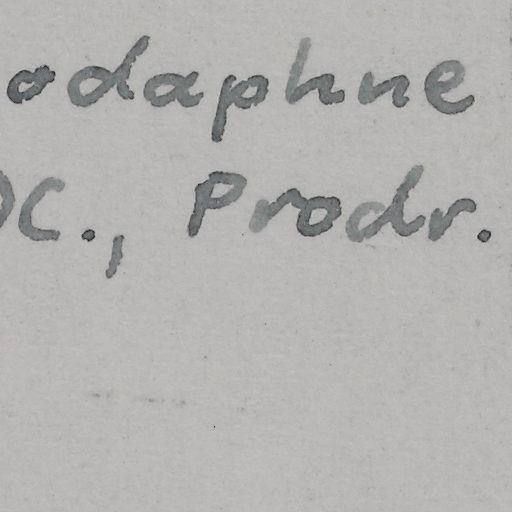 odaphne
DC., Prodr.